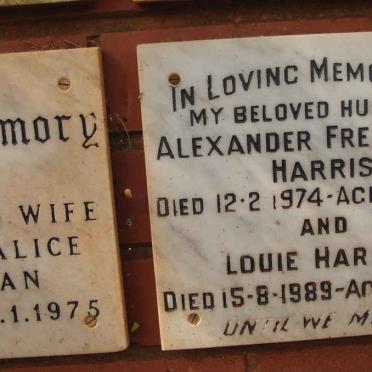 mory
WIFE
ALICE
AN
.1.1975
IN LOVING MEMO
MY BELOVED HU
ALEXANDER FRE
HARRIS
DIED 12·2 1974-AGE
AND
LOUIE HAR
DIED 15-8-1989-AG
UNTIL WE M